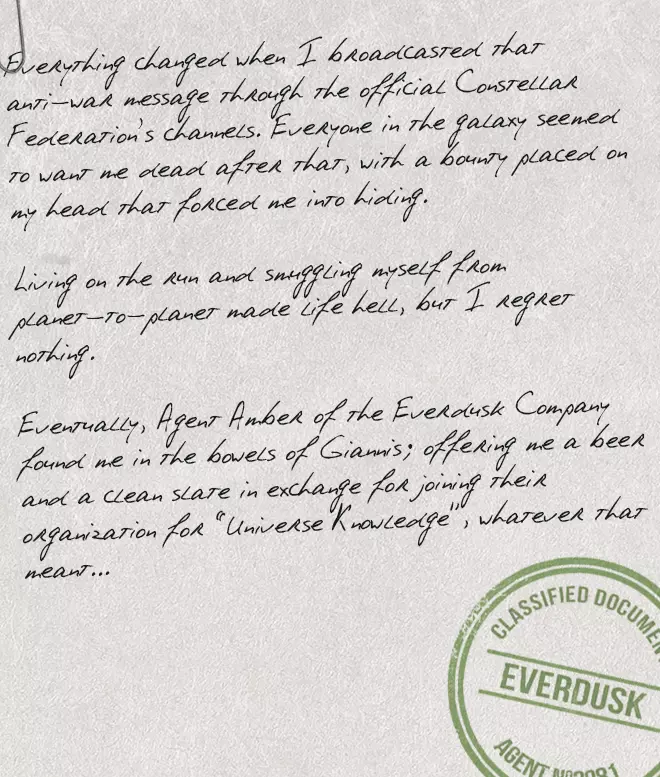 Everything changed when I broadcasted that
anti-war message through the official Constellar
Federation's channels. Everyone in the galaxy seemed
to want me dead after that, with a bounty placed on
my head that forced me into hiding.
Living on the run and smuggling myself from
planet-to-planet made life hell, but I regret
nothing.
Eventually, Agent Amber of the Everdusk Company
found me in the bowels of Giannis; offering me a beer
and a clean slate in exchange for joining their
organization for "Universe Knowledge", whatever that
meant...
CLASSIFIED DOCUMEN
EVERDUSK
AGENT Nº